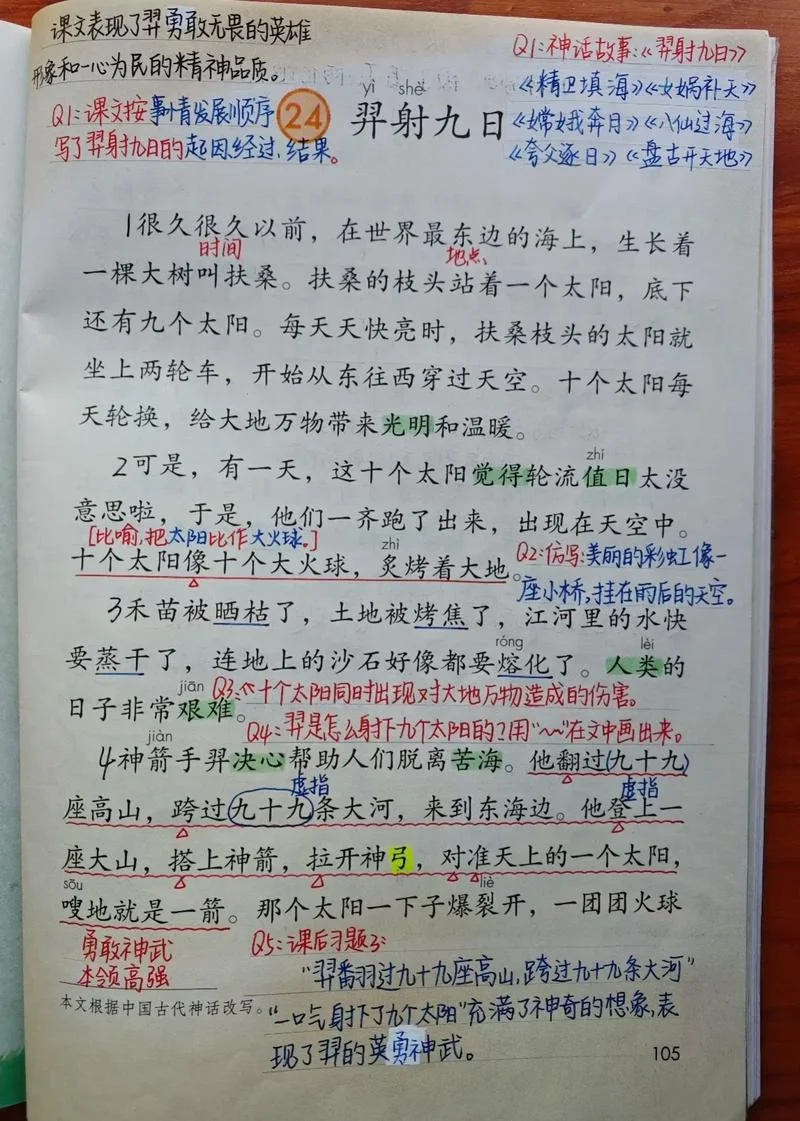 课文表现了羿勇敢无畏的英雄
形象和一心为民的精神品质。
Q1:课文按事情发展顺序
写了羿射九日的起因、经过、结果。
Q1:神话故事:《羿射九日》
《精卫填海》《女娲补天》
《嫦娥奔月》《八仙过海》
《夸父逐日》《盘古开天地》
yì shè
24 羿射九日
1很久很久以前，在世界最东边的海上，生长着
时间 地点
一棵大树叫扶桑。扶桑的枝头站着一个太阳，底下
还有九个太阳。每天天快亮时，扶桑枝头的太阳就
坐上两轮车，开始从东往西穿过天空。十个太阳每
天轮换，给大地万物带来光明和温暖。
zhí
2可是，有一天，这十个太阳觉得轮流值日太没
意思啦，于是，他们一齐跑了出来，出现在天空中。
[比喻,把太阳比作大火球。]
zhì
十个太阳像十个大火球，炙烤着大地。
Q2:仿写:美丽的彩虹像一
座小桥,挂在雨后的天空。
3禾苗被晒枯了，土地被烤焦了，江河里的水快
róng lèi
要蒸干了，连地上的沙石好像都要熔化了。人类的
jiān
日子非常艰难。
Q3:《十个太阳同时出现对大地万物造成的伤害。
Q4:羿是怎么射下九个太阳的?用“﹏”在文中画出来。
jiàn
4神箭手羿决心帮助人们脱离苦海。他翻过(九十九)
虚指 虚指
座高山，跨过九十九条大河，来到东海边。他登上一
座大山，搭上神箭，拉开神弓，对准天上的一个太阳，
sōu liè
嗖地就是一箭。那个太阳一下子爆裂开，一团团火球
勇敢神武
本领高强
Q5:课后习题3:
“羿翻过九十九座高山,跨过九十九条大河”
“一口气射下了九个太阳”充满了神奇的想象,表
现了羿的英勇神武。
本文根据中国古代神话改写。
105